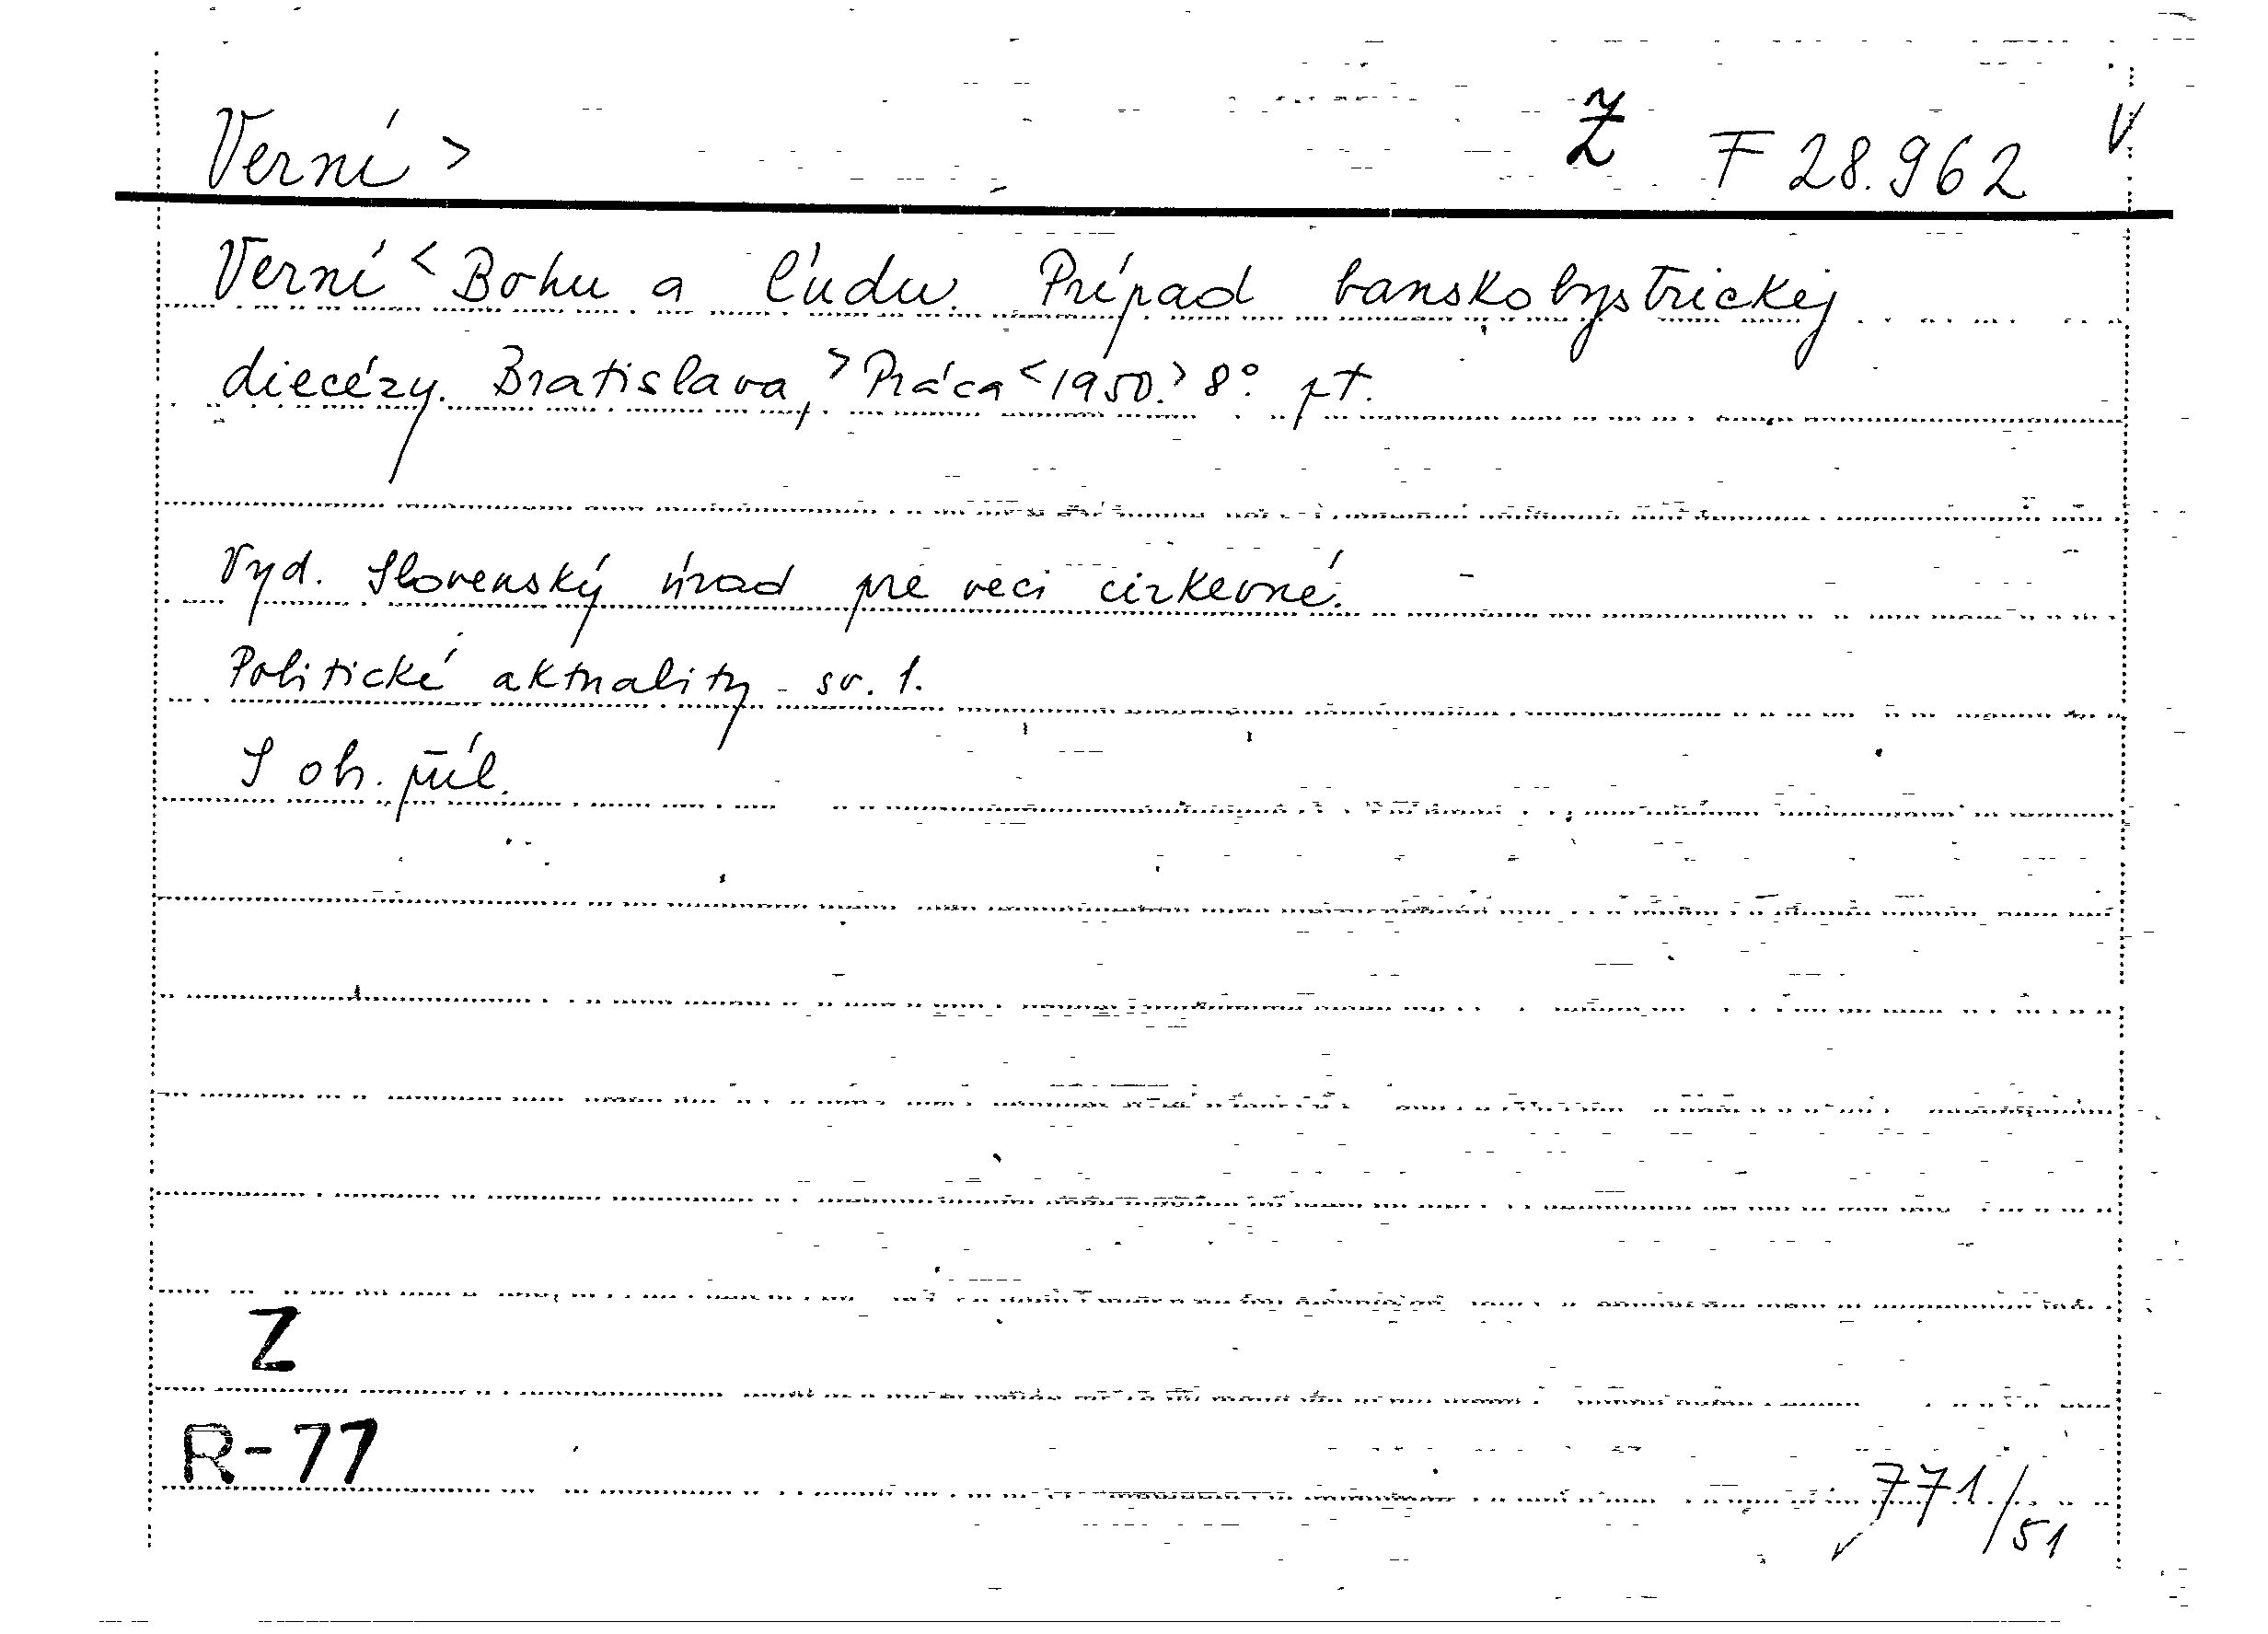 Verní > Ž F 28.962 V
Verní < Bohu a ľudu. Prípad banskobystrickej
diecézy. Bratislava, > Práca < 1950. > 8°. pt.
Vyd. Slovenský úrad pre veci cirkevné.
Politické aktuality - sv. 1.
S ob. příl.
Z
R-77
771/51